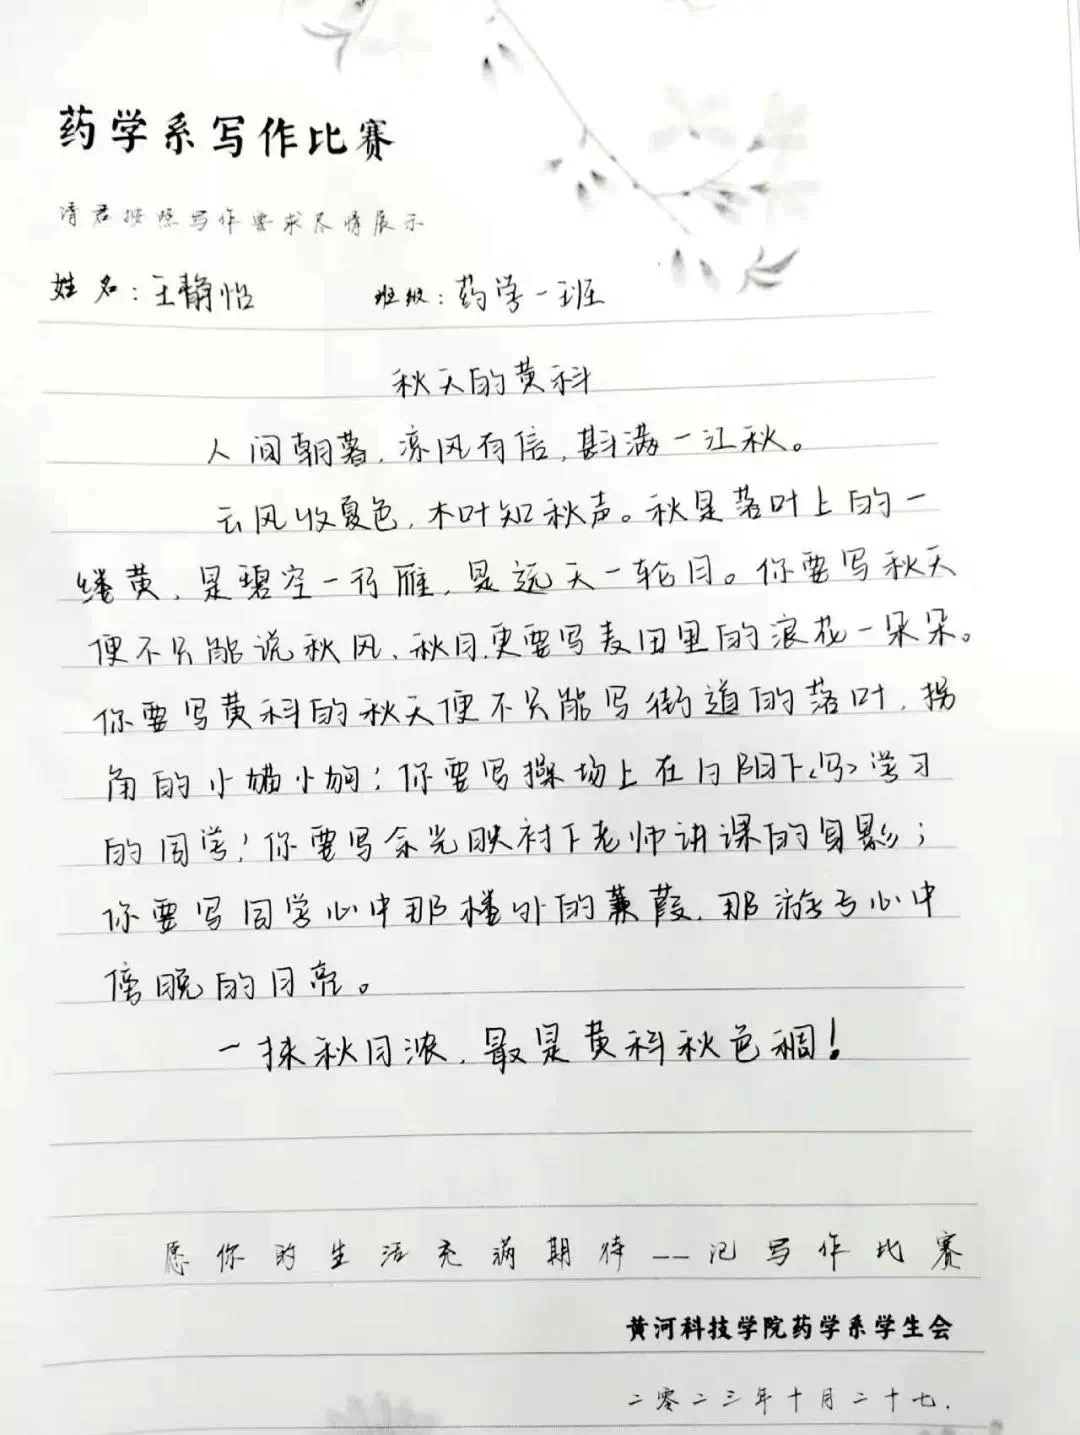 药学系写作比赛
请君按照写作要求尽情展示
姓名:王静怡 班级:药学一班
秋天的黄科
人间朝暮,凉风有信,斟满一江秋。
云风收夏色,木叶知秋声。秋是落叶上的一
缕黄,是碧空一行雁,是远天一轮月。你要写秋天
便不只能说秋风、秋月,更要写麦田里的浪花一朵朵。
你要写黄科的秋天便不只能写街道的落叶,拐
角的小猫小狗;你要写操场上在夕阳下学习
的同学;你要写余光映衬下老师讲课的身影;
你要写同学心中那楼外的蒹葭,那游子心中
傍晚的月亮。
一抹秋月浓,最是黄科秋色稠!
愿你的生活充满期待——记写作比赛
黄河科技学院药学系学生会
二零二三年十月二十七.